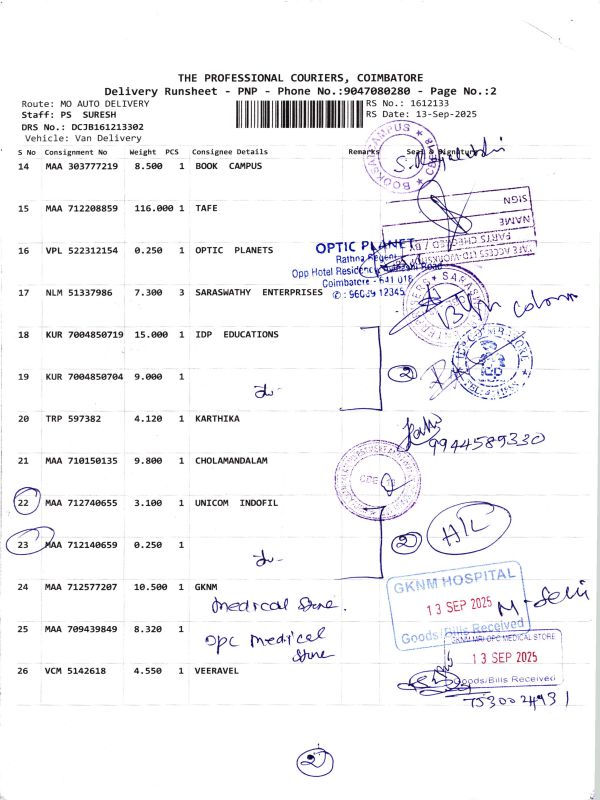 THE PROFESSIONAL COURIERS, COIMBATORE
Delivery Runsheet - PNP - Phone No.:9047080280 - Page No.:2
Route: MO AUTO DELIVERY RS No.: 1612133
Staff: PS SURESH RS Date: 13-Sep-2025
DRS No.: DCJB161213302
Vehicle: Van Delivery
S No Consignment No Weight PCS Consignee Details Remarks Seal & Signature
14 MAA 303777219 8.500 1 BOOK CAMPUS
15 MAA 712208859 116.000 1 TAFE
SIGN
NAME
PARTS CHECKED BY
16 VPL 522312154 0.250 1 OPTIC PLANETS
OPTIC PLANET
Rathna Regent
Opp Hotel Residency
Coimbatore - 641 018
17 NLM 51337986 7.300 3 SARASWATHY ENTERPRISES
18 KUR 7004850719 15.000 1 IDP EDUCATIONS
19 KUR 7004850704 9.000 1
2
20 TRP 597382 4.120 1 KARTHIKA
9944589330
21 MAA 710150135 9.800 1 CHOLAMANDALAM
CBE
22 MAA 712740655 3.100 1 UNICOM INDOFIL
23 MAA 712140659 0.250 1
2 HIL
24 MAA 712577207 10.500 1 GKNM
Medical Store.
GKNM HOSPITAL
13 SEP 2025
Goods/Bills Received
25 MAA 709439849 8.320 1
OPC Medical
Store
GKNM MRI OPC MEDICAL STORE
13 SEP 2025
Goods/Bills Received
26 VCM 5142618 4.550 1 VEERAVEL
7530024931
2